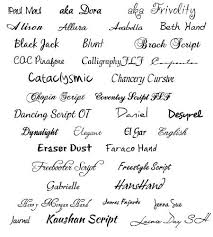 Paul Maul aka Dora aka Frivolity
Alison Allura Arabella Beth Hand
Black Jack Blunt Brock Script
CAC Pinafore Calligraphy FLF Carpenter
Cataclysmic Chancery Cursive
Chopin Script Coventry Script FLF
Dancing Script OT Daniel Desyrel
Dynalight Elegant El Gar English
Eraser Dust Faraco Hand
Freebooter Script Freestyle Script
Gabrielle HansHand
Jenna Sue
Journal Kaushan Script